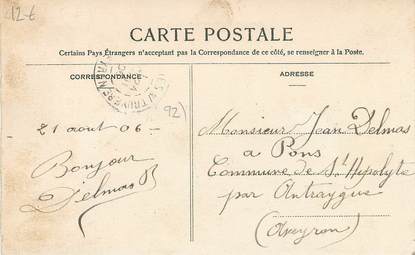 12-€
CARTE POSTALE
Certains Pays Étrangers n'acceptant pas la Correspondance de ce côté, se renseigner à la Poste.
CORRESPONDANCE
ADRESSE
92)
21 aout 06 -
Bonjour
Delmas
Monsieur Jean Delmas
a Pons
Commune de St Hipolyte
par Antraygue
(Aveyron)